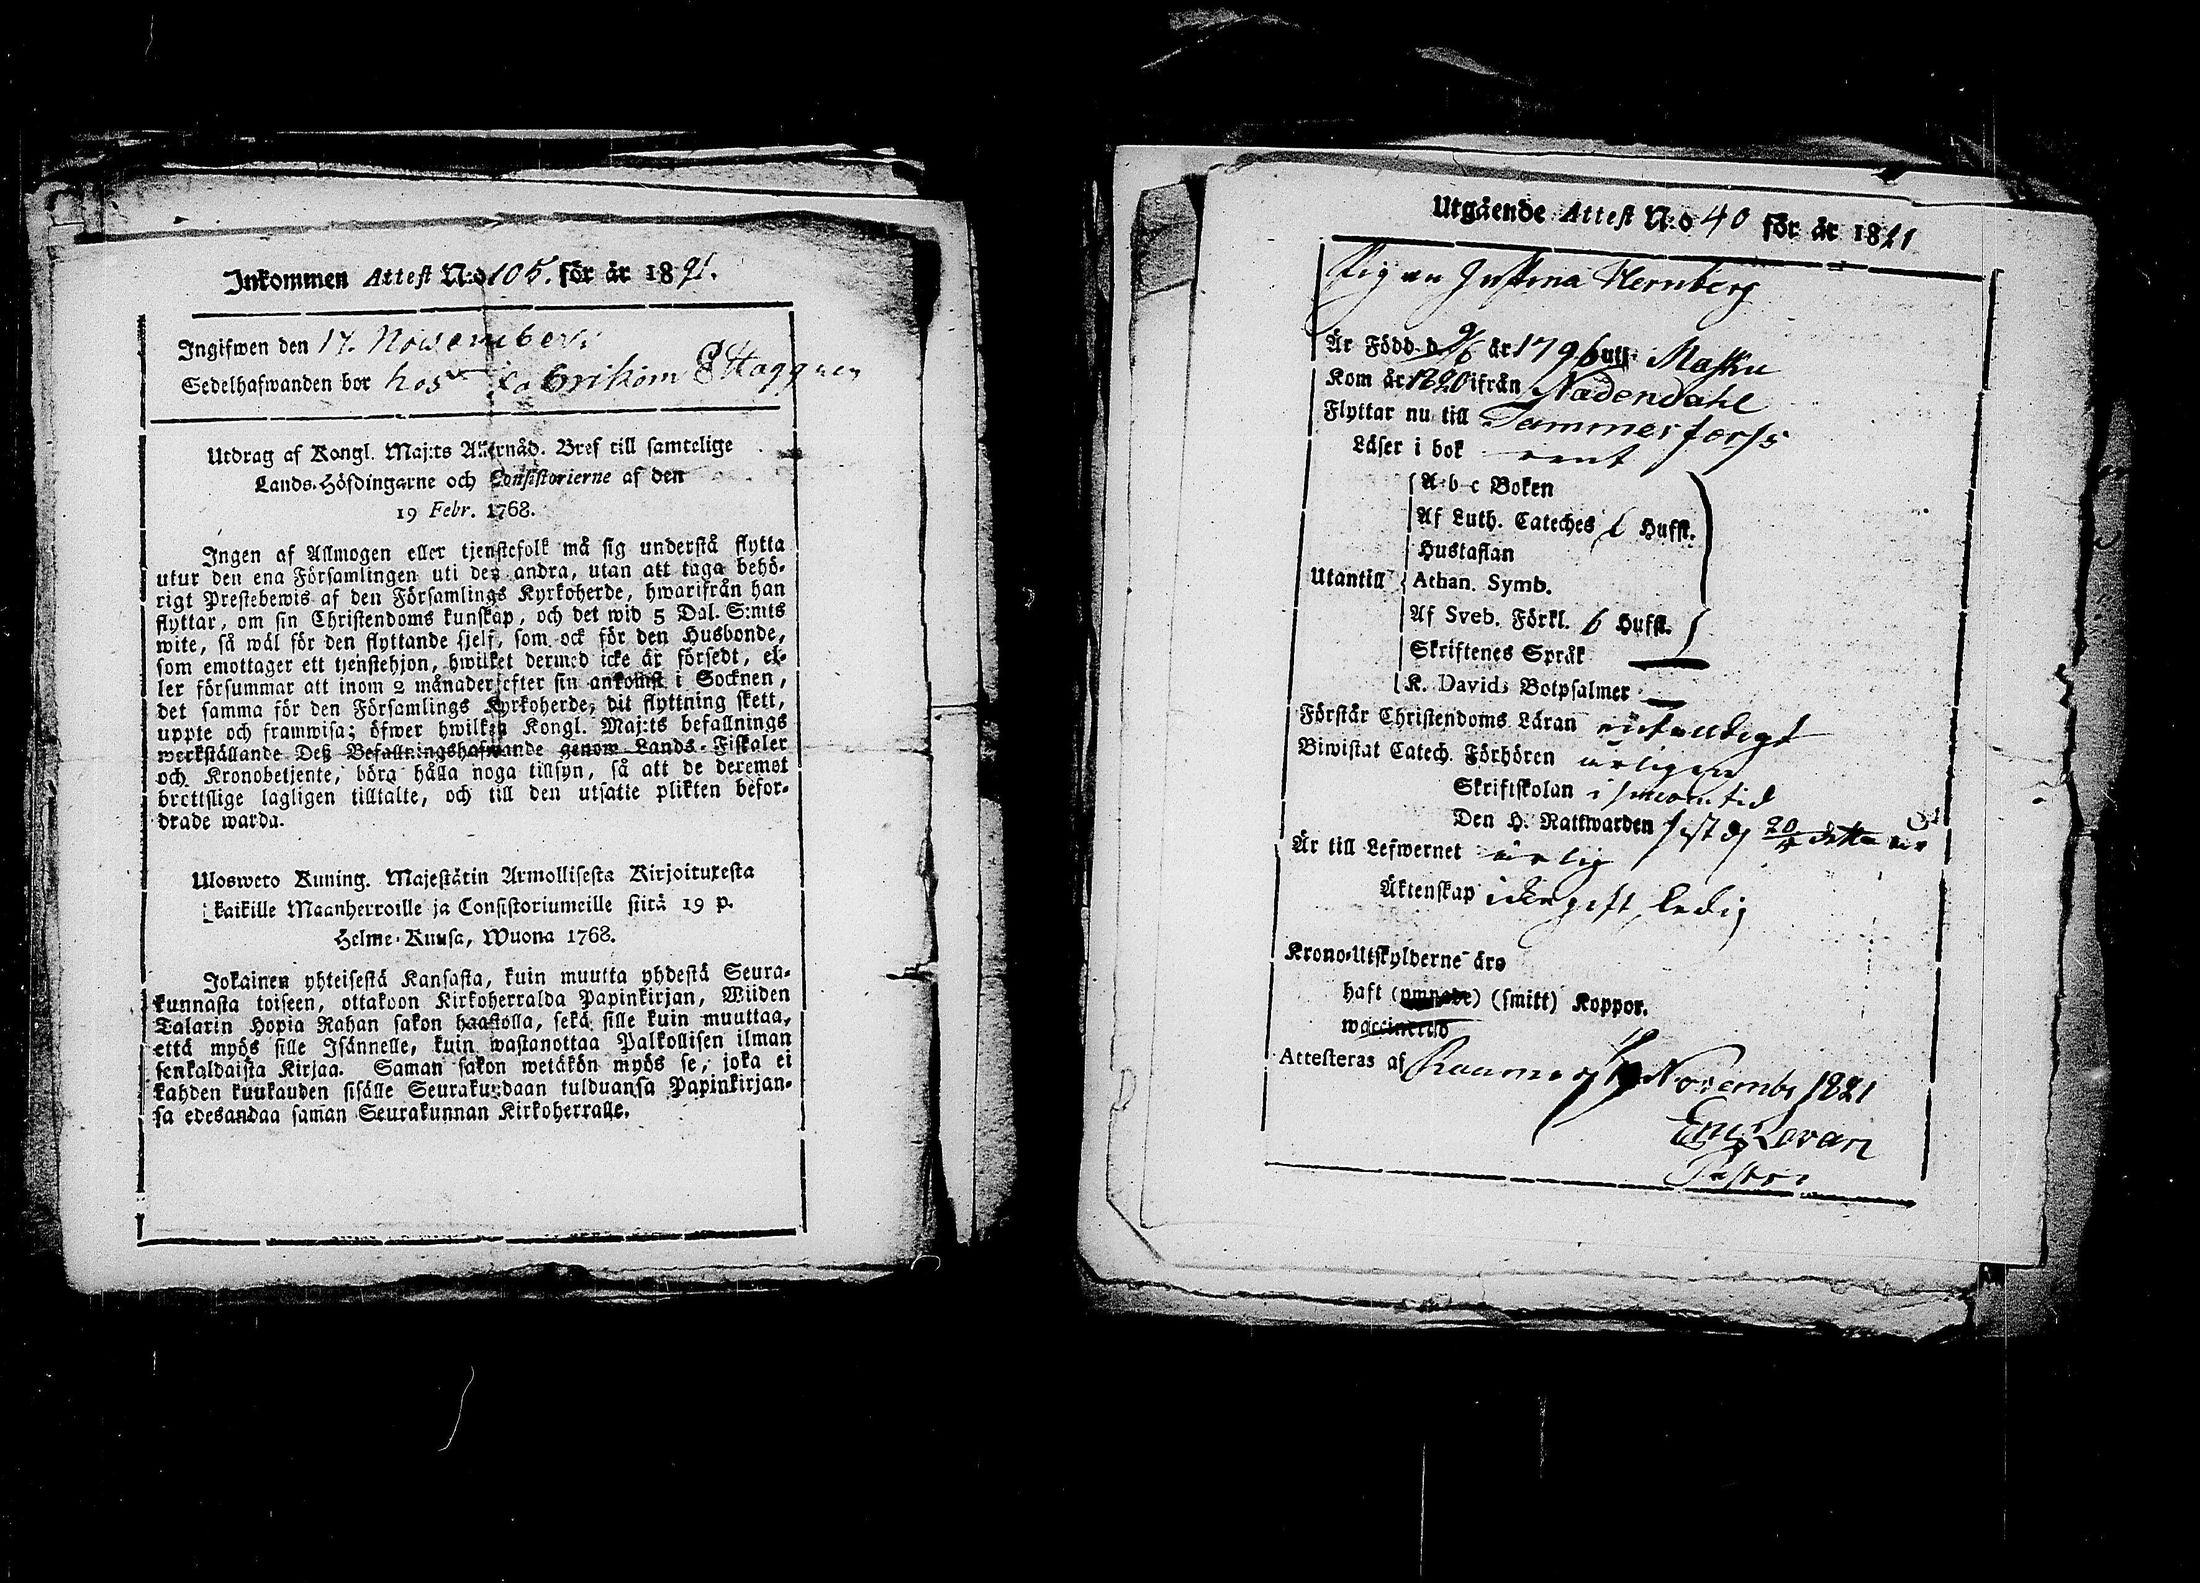 Inkommen Attest N:o 105. för år 1821.
Ingifwen den 17. November
Sedelhafwanden bor hos
Utdrag af Kongl. Maj:ts Allernåd. Bref till samtelige
Lands-Höfdingarne och Consistorierne af den
19 Febr. 1768.
Ingen af Allmogen eller tjenstefolk må sig understå flytta
utur den ena Församlingen uti den andra, utan att taga behö-
rigt Prestebewis af den Församlings Kyrkoherde, hwarifrån han
flyttar, om sin Christendoms kunskap, och det wid 5 Dal. S:mts
wite, så wäl för den flyttande sjelf, som ock för den Husbonde,
som emottager ett tjenstehjon, hwilket dermed icke är försedt, el-
ler försummar att inom 2 månader efter sin ankomst i Socknen,
det samma för den Församlings Kyrkoherde, dit flyttning skett,
uppte och framwisa; öfwer hwilken Kongl. Maj:ts befallnings
werkställande Deß Befallningshafwande genom Lands-Fiskaler
och Kronobetjente, böra hålla noga tillsyn, så att de deremot
brottslige lagligen tilltalte, och till den utsatte plikten befor-
drade warda.
Ulosweto Kuning. Majestätin Armollisesta Kirjoituxesta
kaikille Maanherroille ja Consistoriumeille siitä 19 p.
Helme-Kuusa, Wuona 1768.
Jokainen yhteisestä Kansasta, kuin muutta yhdestä Seura-
kunnasta toiseen, ottakoon Kirkoherralda Papinkirjan, Wiiden
Talarin Hopia Rahan sakon haastolla, sekä sille kuin muuttaa,
että myös sille Isännelle, kuin wastanottaa Palkollisen ilman
senkaldaista Kirjaa. Saman sakon wetäkön myös se, joka ei
kahden kuukauden sisälle Seurakundaan tulduansa Papinkirjan-
sa edesandaa saman Seurakunnan Kirkoherralle.
Utgående Attest N:o 40 för år 1821
Pigan Justina Hernberg
Är Född d. 9/6 år 1796 uti Masku
Kom år 1820 ifrån Nådendahl
Flyttar nu till Tammerfors
Läser i bok rent
Utantill
A-b-c Boken
Af Luth. Cateches 6 Hufst.
Hustaflan
Athan. Symb.
Af Sveb. Förkl. 6 Hufst.
Skriftenes Språk —
K. Davids Botpsalmer —
Förstår Christendoms Läran enfaldigt
Biwistat Catech. Förhören årligen
Skriftskolan i sinom tid
Den H. Nattwarden sist d. 20/5 detta år
Är till Lefwernet ärlig
Äktenskap icke gift, ledig
Krono-Utskylderne äro
haft (ympade) (smitt) Koppor.
waccinerad
Attesteras af Raumo d. November 1821
Em Lovan
Pastor